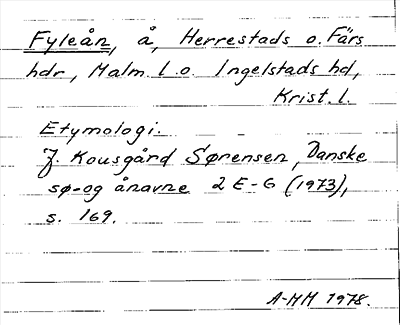 Fyleån, å, Herrestads o. Färs
hdr, Malm. l. o. Ingelstads hd,
Krist. l.
Etymologi.
J. Kousgård Sørensen, Danske
sø- og ånavne 2 E-G (1973),
s. 169.
A-MH 1978.